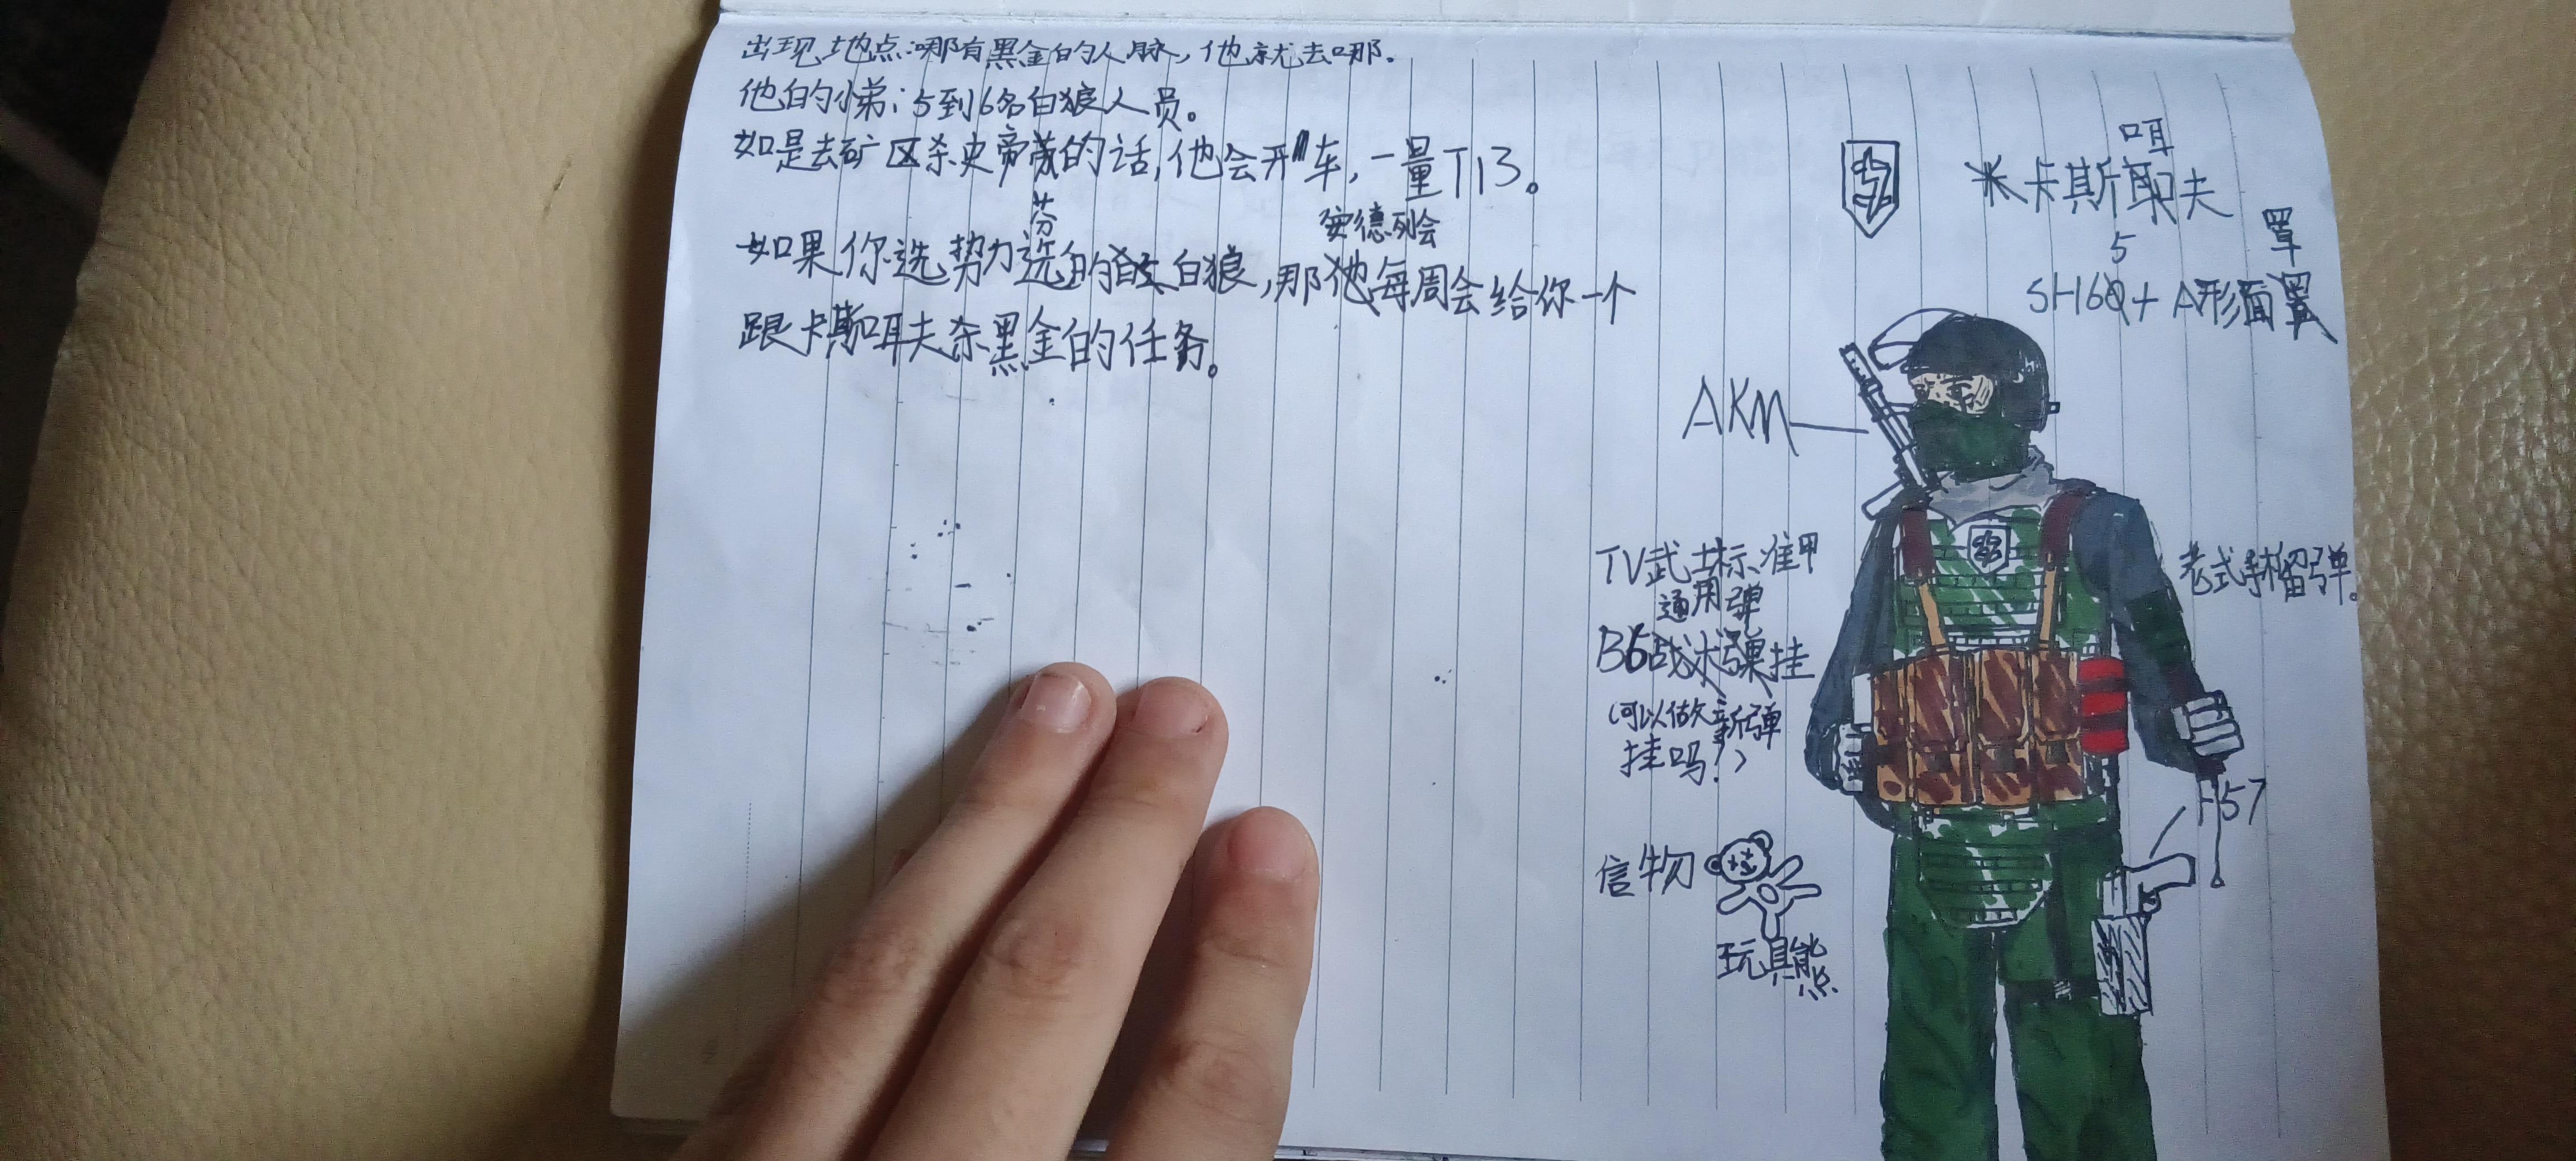 出现地点:哪有黑金的人脉,他就去哪.
他的小弟:5到6名白狼人员。
如是去矿区杀史帝芬的话,他会开车,一量T13。
安德列会
如果你选势力选的白狼,那他每周会给你一个
跟卡斯咡夫杀黑金的任务。
咡
米卡斯耶夫
5
罩
SH60+A形面罩
AKM
TV武士标准甲
通用弹
B6战术弹挂
(可以做新弹
挂吗!)
老式手榴弹。
信物
玩具熊
57